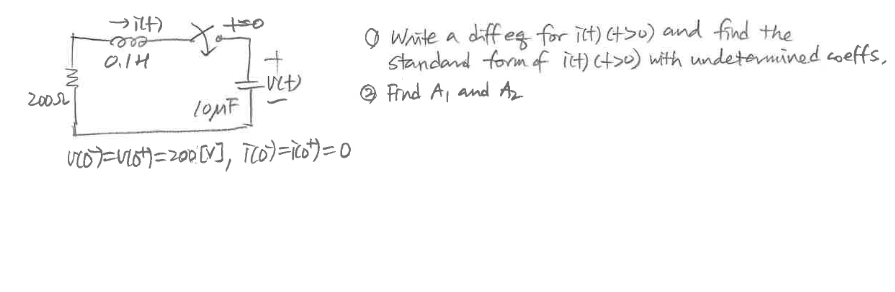 → i(t)
t=0
0.1H
200Ω
+
v(t)
−
10μF
v(0⁻)=v(0⁺)=200[V], i(0⁻)=i(0⁺)=0
① Write a diff eq for i(t) (t>0) and find the
standard form of i(t) (t>0) with undetermined coeffs.
② Find A₁ and A₂